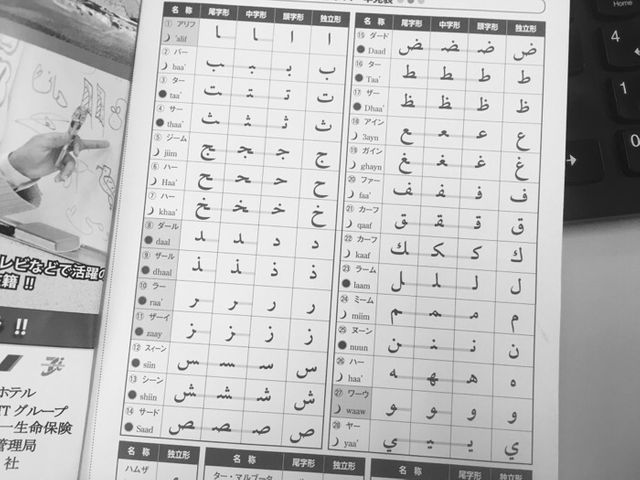 名 称 尾字形 中字形 頭字形 独立形
① アリフ
'alif ـا ـا ا ا
② バー
baa' ـب ـبـ بـ ب
③ ター
taa' ـت ـتـ تـ ت
④ サー
thaa' ـث ـثـ ثـ ث
⑤ ジーム
jiim ـج ـجـ جـ ج
⑥ ハー
Haa' ـح ـحـ حـ ح
⑦ ハー
khaa' ـخ ـخـ خـ خ
⑧ ダール
daal ـد ـد د د
⑨ ザール
dhaal ـذ ـذ ذ ذ
⑩ ラー
raa' ـر ـر ر ر
⑪ ザーイ
zaay ـز ـز ز ز
⑫ スィーン
siin ـس ـسـ سـ س
⑬ シーン
shiin ـش ـشـ شـ ش
⑭ サード
Saad ـص ـصـ صـ ص
名 称 尾字形 中字形 頭字形 独立形
⑮ ダード
Daad ـض ـضـ ضـ ض
⑯ ター
Taa' ـط ـطـ طـ ط
⑰ ザー
Dhaa' ـظ ـظـ ظـ ظ
⑱ アイン
3ayn ـع ـعـ عـ ع
⑲ ガイン
ghayn ـغ ـغـ غـ غ
⑳ ファー
faa' ـف ـفـ فـ ف
㉑ カーフ
qaaf ـق ـقـ قـ ق
㉒ カーフ
kaaf ـك ـكـ كـ ك
㉓ ラーム
laam ـل ـلـ لـ ل
㉔ ミーム
miim ـم ـمـ مـ م
㉕ ヌーン
nuun ـن ـنـ نـ ن
㉖ ハー
haa' ـه ـهـ هـ ه
㉗ ワーウ
waaw ـو ـو و و
㉘ ヤー
yaa' ـي ـيـ يـ ي
名 称 独立形
ハムザ
名 称 尾字形 独立形
ター・マルブータ
名 称
レビなどで活躍の
!!
ホテル
TTグループ
一生命保険
管理局
社
Home
4
1
0